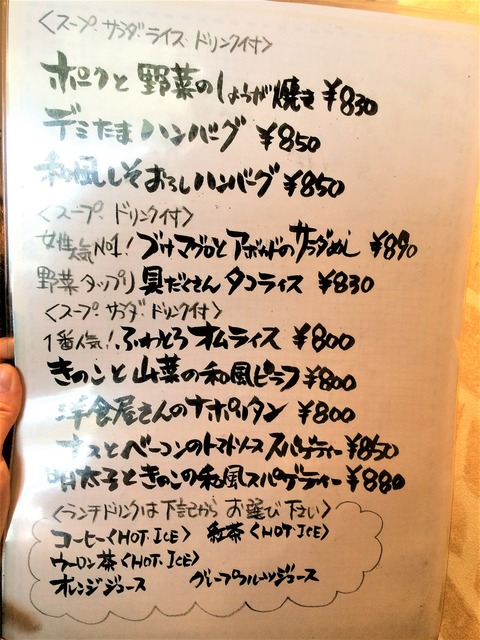 <スープ サラダ ライス ドリンク付>
ポークと野菜のしょうが焼き ¥830
デミたまハンバーグ ¥850
和風しそおろしハンバーグ ¥850
<スープ ドリンク付>
女性人気No1! づけマグロとアボカドのサラダめし ¥890
野菜タップリ 具だくさんタコライス ¥830
<スープ サラダ ドリンク付>
1番人気! ふわとろオムライス ¥800
きのこと山菜の和風ピラフ ¥800
洋食屋さんのナポリタン ¥800
ナスとベーコンのトマトソーススパゲティー ¥850
明太子ときのこの和風スパゲティー ¥880
<ランチドリンクは下記からお選び下さい>
コーヒー<HOT・ICE> 紅茶<HOT・ICE>
ウーロン茶<HOT・ICE>
オレンジジュース グレープフルーツジュース